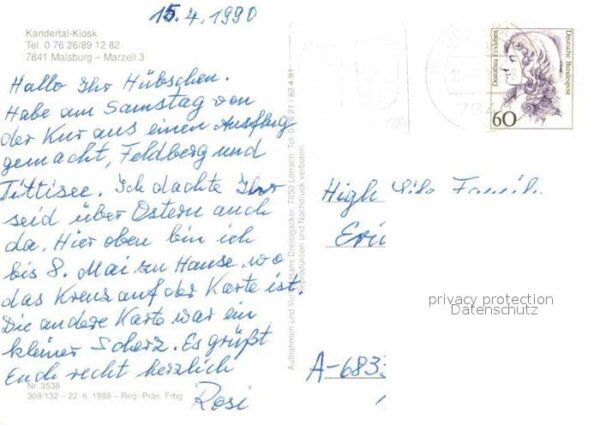 15.4.1990
Kandertal-Kiosk
Tel. 0 76 26/89 12 82
7841 Malsburg – Marzell 3
Hallo Ihr Hübschen.
Habe am Samstag von
der Kur aus einen Ausflug
gemacht, Feldberg und
Tittisee. Ich dachte Ihr
seid über Ostern auch
da. Hier oben bin ich
bis 8. Mai zu Hause. wo
das Kreuz auf der Karte ist.
Die andere Karte war ein
kleiner Scherz. Es grüßt
Euch recht herzlich
Rosi
Nr. 3538
308/132 – 22. 6. 1988 – Reg.-Präs. Frbg.
Aufnahmen und Verlag Hans 7850 Lörrach
Reproduktion und Nachdruck verboten
Dorothea Erxleben
Deutsche Bundespost
60
High
A-683
privacy protection
Datenschutz